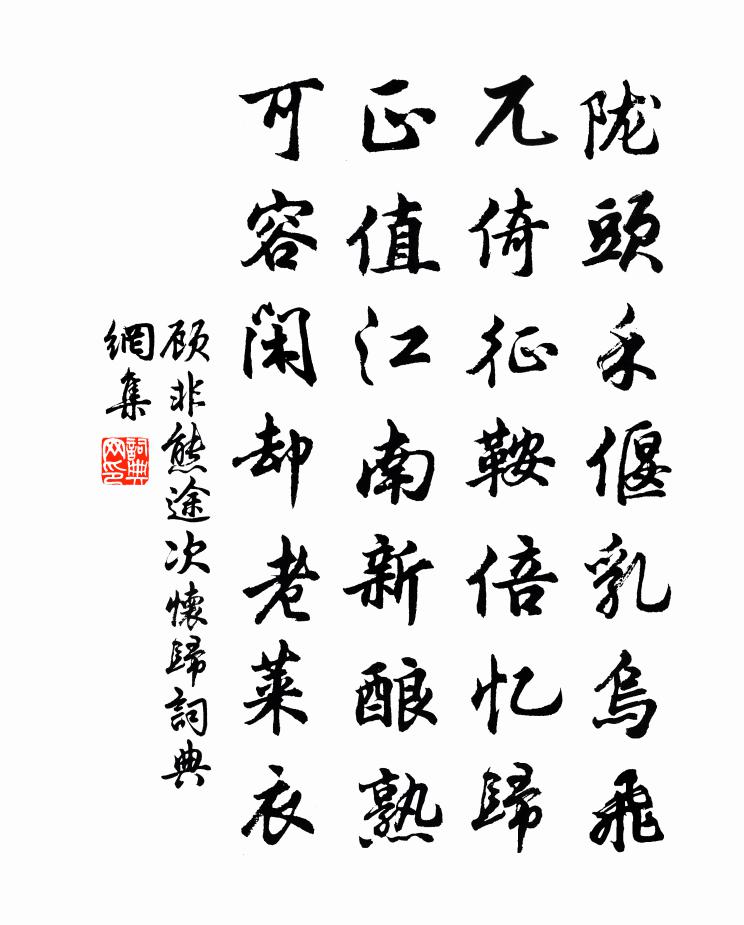 陇頭禾偃乳烏飛
兀倚征鞍倍忆歸
正值江南新酿熟
可容闲却老莱衣
顾非熊途次懷歸詞典
網集
詞典
网印